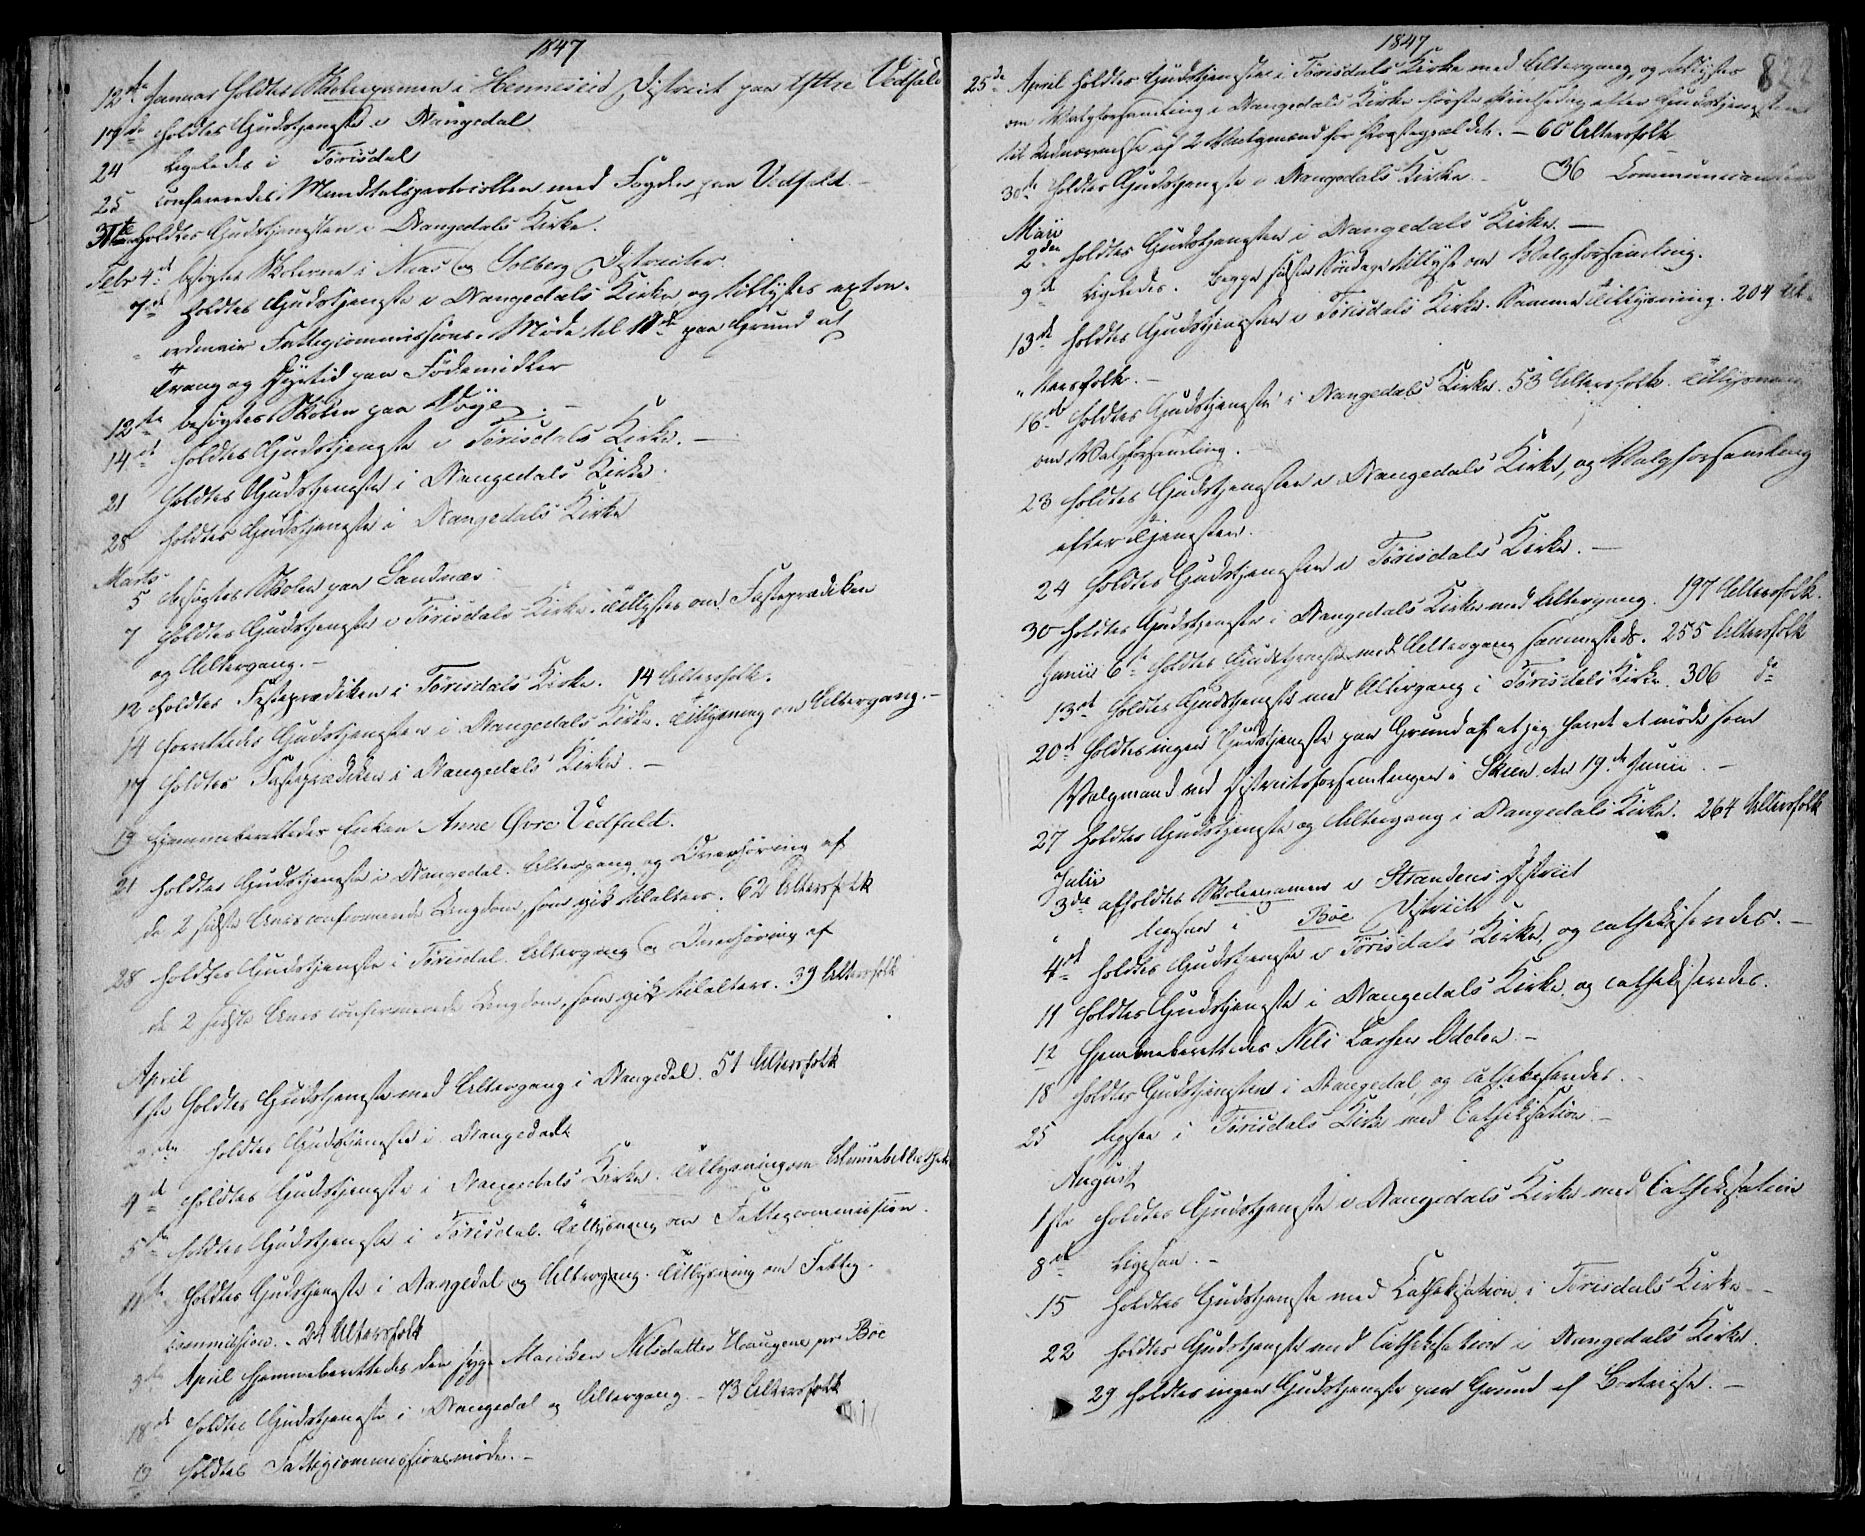 1847
12te Januar holdtes Skoleexamen i Henneseid District paa Ystre Vedfald
17de holdtes Gudstjeneste i Drangedal
24 Ligeledes i Törisdal
25 confereredes Mandtalsprotocollen med Fogden paa Vedfald. –
31te holdtes Gudstjenesten i Drangedals Kirke.
Febr 4de besögtes Skolerne i Naas og Solberg Districter.
7de holdtes Gudstjeneste i Drangedals Kirke og tillystes extra-
ordinair Fattigcommissions-Möde til paa Grund af
Trang og Dyrtid paa Födemidler
12te besögtes Skolen paa Vöje. –
14de holdtes Gudstjeneste i Törisdals Kirke. –
21 holdtes Gudstjeneste i Drangedals Kirke.
28 holdtes Gudstjeneste i Drangedals Kirke
Marts
5 besögtes Skolen paa Sandnæs.
7 holdtes Gudstjeneste i Törisdals Kirke. tillystes om Fasteprædiken
og Altergang. –
12 holdtes Fasteprædiken i Törisdals Kirke. 14 Altersfolk.
14 forrettedes Gudstjenesten i Drangedals Kirke. Tillysning om Altergang. –
17 holdtes Fasteprædiken i Drangedals Kirke. –
19 Hjemmeberettedes Enken Anne Övre Vedfald.
21 holdtes Gudstjeneste i Drangedal. Altergang og Overhöring af
de 2 sidste Aars confirmerede Ungdom, som gik tilalters. 62 Altersfolk
28 holdtes Gudstjeneste i Törisdal. Altergang og Overhöring af
de 2 sidste Aars confirmerede Ungdom, som gik tilalters. 39 Altersfolk
April
1ste holdtes Gudstjeneste med Altergang i Drangedal. 51 Altersfolk
2den holdtes Gudstjeneste i Drangedal
4de holdtes Gudstjeneste i Drangedals Kirke. Tillysning om Almuebibliothek
5te holdtes Gudstjeneste i Törisdal. Tillysning om Fattigcommission.
11te holdtes Gudstjeneste i Drangedal og Altergang. Tillysning om Fattig-
commission. – 24 Altersfolk
April hjemmeberettedes den syge Mariken Nilsdatter Haugene pr Böe
18de holdtes Gudstjeneste i Drangedal og Altergang. – 73 Altersfolk
19 holdtes Fattigcommissionsmöde. –
1847
25de April holdtes Gudstjeneste i Törisdals Kirke med Altergang, og tillystes
om Valgforsamling i Drangedals Kirke förste Pintsedag efter Gudstjenesten
til Udnævnelse af 2 Valgmænd for Præstegjældet. – 60 Altersfolk
30te holdtes Gudstjeneste i Drangedals Kirke. – 36 Communicanter
Maii
2den holdtes Gudstjenesten i Drangedals Kirke. –
9de Ligeledes. Begge sidste Söndage tillyst om Valgforsamling.
13de holdtes Gudstjenesten i Törisdals Kirke. Samme Tillysning. 204 Al-
tersfolk. –
16de holdtes Gudstjeneste i Drangedals Kirke. 53 Altersfolk. Tillysning
om Valgforsamling. –
23 holdtes Gudstjenesten i Drangedals Kirke, og Valgforsamling
efter Tjenesten.
24 holdtes Gudstjenesten i Törisdals Kirke. –
30 holdtes Gudstjeneste i Drangedals Kirke med Altergang. 197 Altersfolk.
Junii 6te holdtes Gudstjeneste med Altergang sammesteds. 255 Altersfolk
13de holdtes Gudstjeneste med Altergang i Törisdals Kirke. 306 do
20de holdtes ingen Gudstjeneste paa Grund af at jeg havde at möde som
Valgmand ved Districtsforsamlingen i Skien den 19de Junii. –
27 holdtes Gudstjeneste og Altergang i Drangedals Kirke. 264 Altersfolk
Julii
3die afholdtes Skoleexamen i Strandens District
ligesaa i Böe District
4de holdtes Gudstjeneste i Törisdals Kirke, og cathekiseredes. –
11 holdtes Gudstjeneste i Drangedals Kirke og cathekiseredes.
12 Hjemmeberettedes Nils Larsen Odden –
18 holdtes Gudstjenesten i Drangedal, og cathekiseredes. –
25 ligesaa i Törisdals Kirke med Cathekisation. –
August
1ste holdtes Gudstjeneste i Drangedals Kirke med Cathekisation
8de Ligesaa. –
15 holdtes Gudstjeneste med Cathekisation i Törisdals Kirke –
22 holdtes Gudstjeneste med Cathekisation i Drangedals Kirke.
29 holdtes ingen Gudstjeneste paa Grund af Bortreise. –